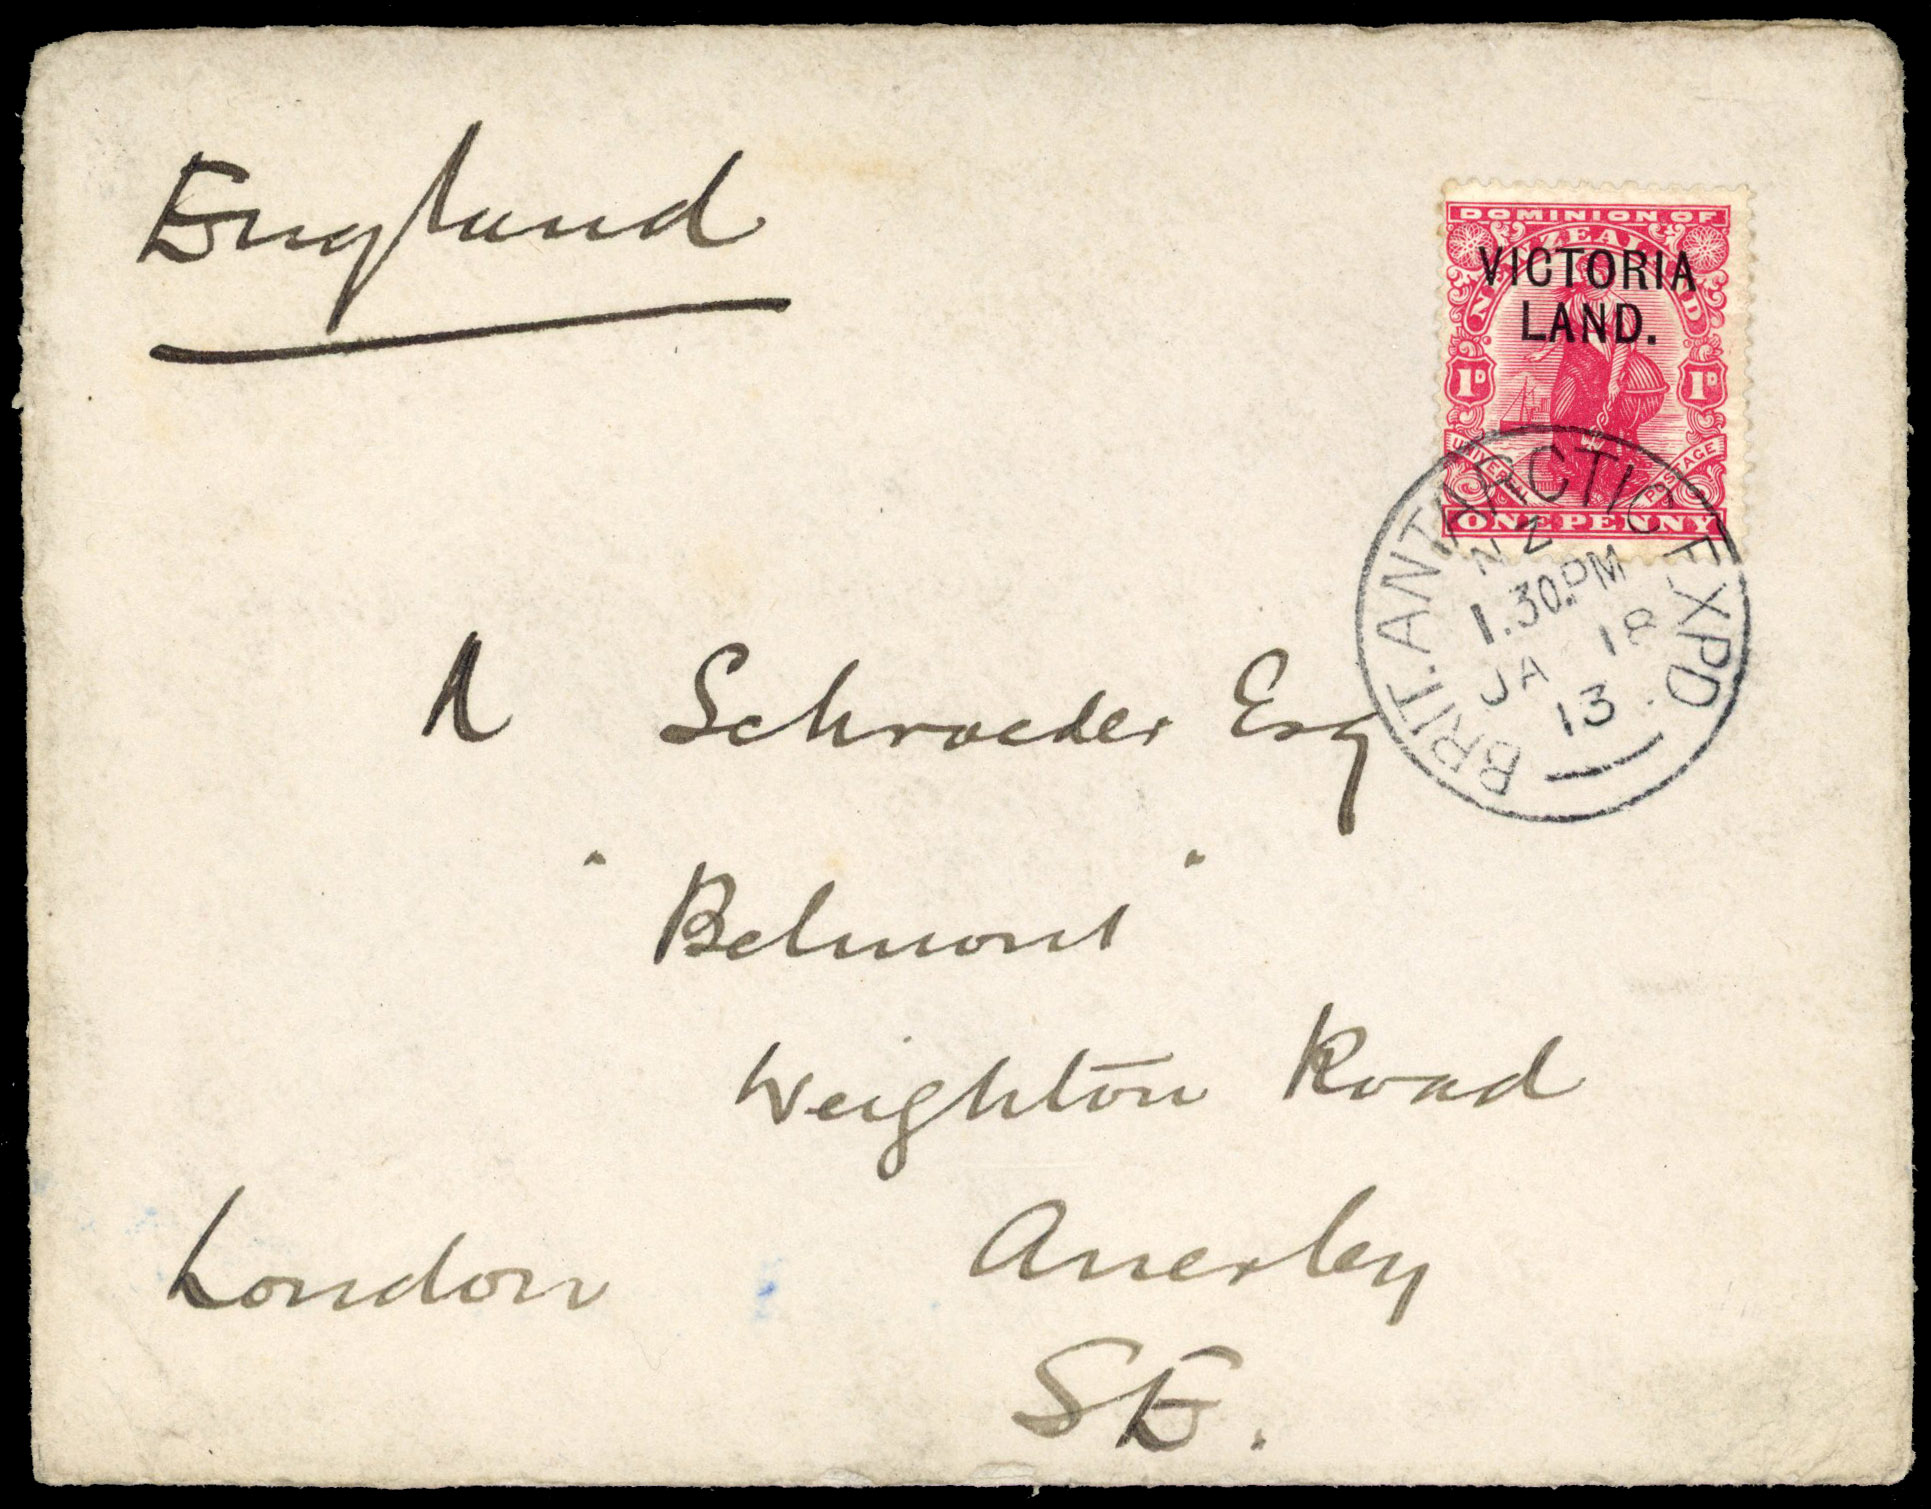 England
DOMINION OF
NEW ZEALAND
VICTORIA
LAND.
1D 1D
UNIVERSAL POSTAGE
ONE PENNY
BRIT. ANTARCTIC EXPD
N Z
1.30.PM
JA 18
13.
A Schroeder Esq
"Belmont"
Weighton Road
Anerley
London
SE.